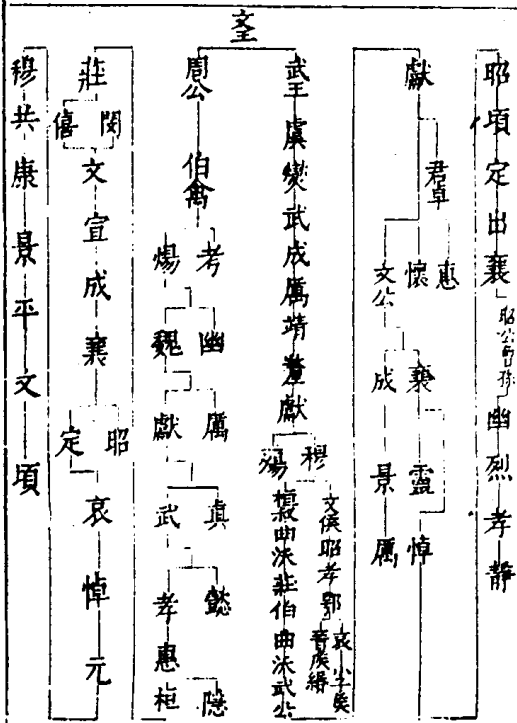 文王
昭頃定出襄
昭公曾孫
幽烈孝靜
獻
君卓
惠
懷
文公
襄靈悼
成景厲
武王虞燮武成厲靖釐獻
穆
殤
文侯昭孝鄂
哀小子侯
晉侯緡
桓叔曲沃莊伯曲沃武公
周公
伯禽
考
煬
幽
魏
厲
獻
真
武
懿
孝惠
隱
桓
莊
閔
僖
文宣成襄
昭
定
哀悼元
穆共康景平文頃